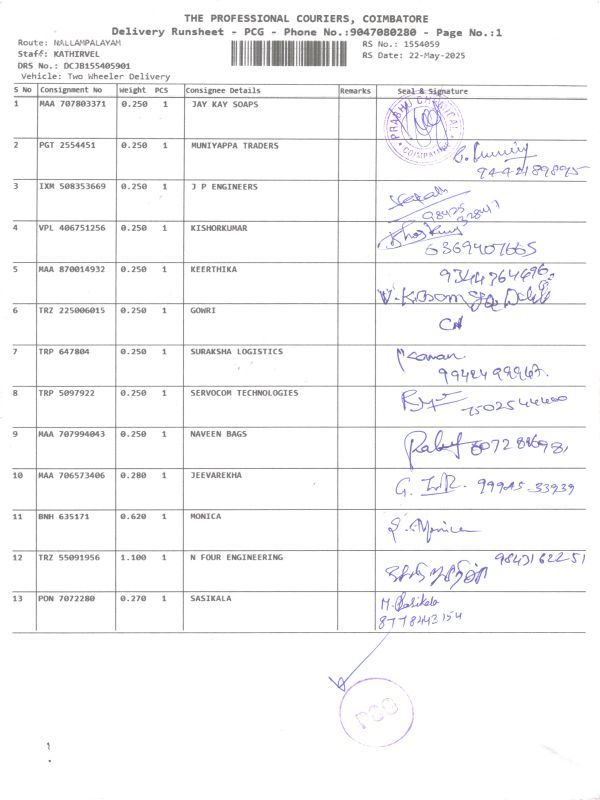 THE PROFESSIONAL COURIERS, COIMBATORE
Delivery Runsheet - PCG - Phone No.:9047080280 - Page No.:1
Route: NALLAMPALAYAM
RS No.: 1554059
Staff: KATHIRVEL
RS Date: 22-May-2025
DRS No.: DCJB155405901
Vehicle: Two Wheeler Delivery
S No Consignment No Weight PCS Consignee Details Remarks Seal & Signature
1 MAA 707803371 0.250 1 JAY KAY SOAPS
2 PGT 2554451 0.250 1 MUNIYAPPA TRADERS
3 IXM 508353669 0.250 1 J P ENGINEERS
4 VPL 406751256 0.250 1 KISHORKUMAR
6369407665
5 MAA 870014932 0.250 1 KEERTHIKA
6 TRZ 225006015 0.250 1 GOWRI
7 TRP 647804 0.250 1 SURAKSHA LOGISTICS
8 TRP 5097922 0.250 1 SERVOCOM TECHNOLOGIES
7502544400
9 MAA 707994043 0.250 1 NAVEEN BAGS
10 MAA 706573406 0.280 1 JEEVAREKHA
11 BNH 635171 0.620 1 MONICA
S. Monica
12 TRZ 55091956 1.100 1 N FOUR ENGINEERING 98431 622 51
13 PON 7072280 0.270 1 SASIKALA M. Sasikala
8778443154
PCG